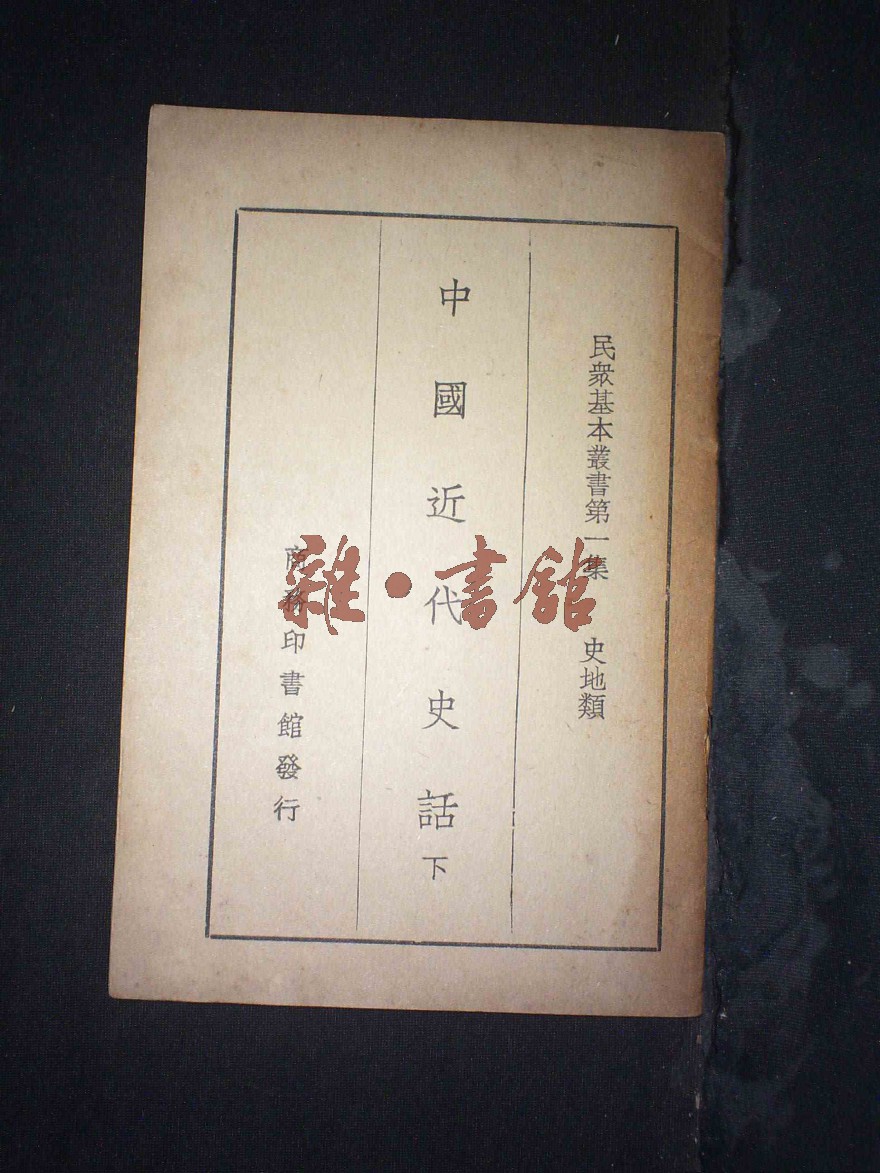 民衆基本叢書第一集 史地類
中國近代史話下
商務印書館發行
雜・書館